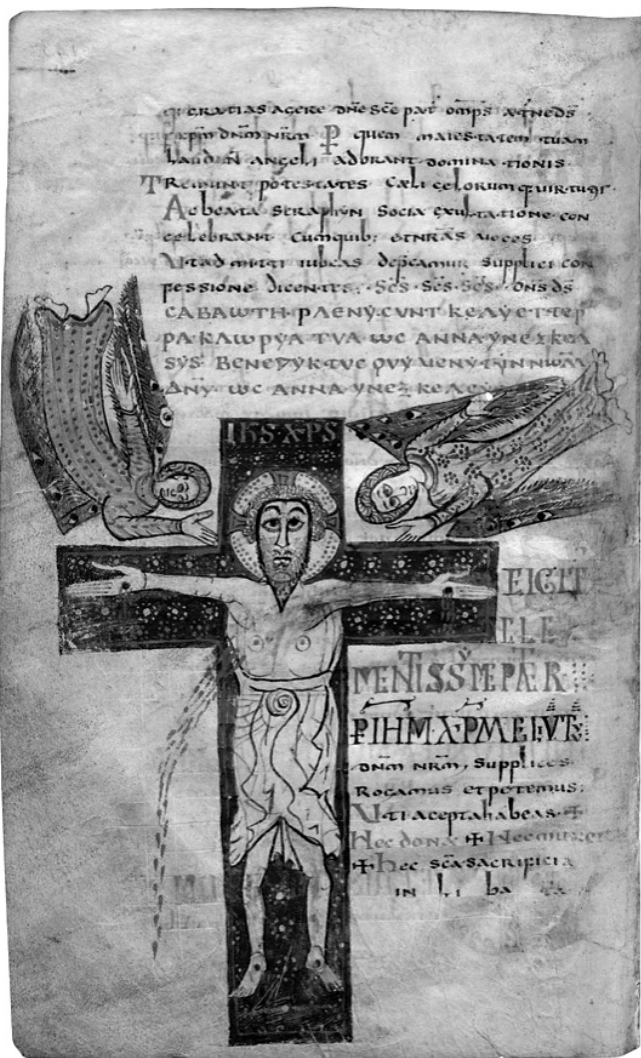 gratias agere dne sce pat omps
xpm dnm nrm P quem maiestatem tuam
laudan angeli adorant dominationis
Tremunt potestates Caeli celorumq: uirtu
Ac beata seraphyn Socia exultatione con
celebrant Cumquib: et nras uoces
Ut admitti iubeas depcamur supplici con
fessione dicentes: Scs Scs Scs Dns ds
CABAωTH PLENY CVNT KELY ET TEP
PA KLωPYA TVA ωC ANNA YNEXKEL
SYS BENEDYKTVC QVY VENYT YN NωM
DNY ωC ANNA YNEX
IHS XPS
EIGIT
CLE
MENTISSYME PATER
P IHM XPM
dnm nrm, supplices
Rogamus et petemus:
Uti acepta habeas
Hec dona ✠ Hec
✠ Hec sca sacrificia
in li ba